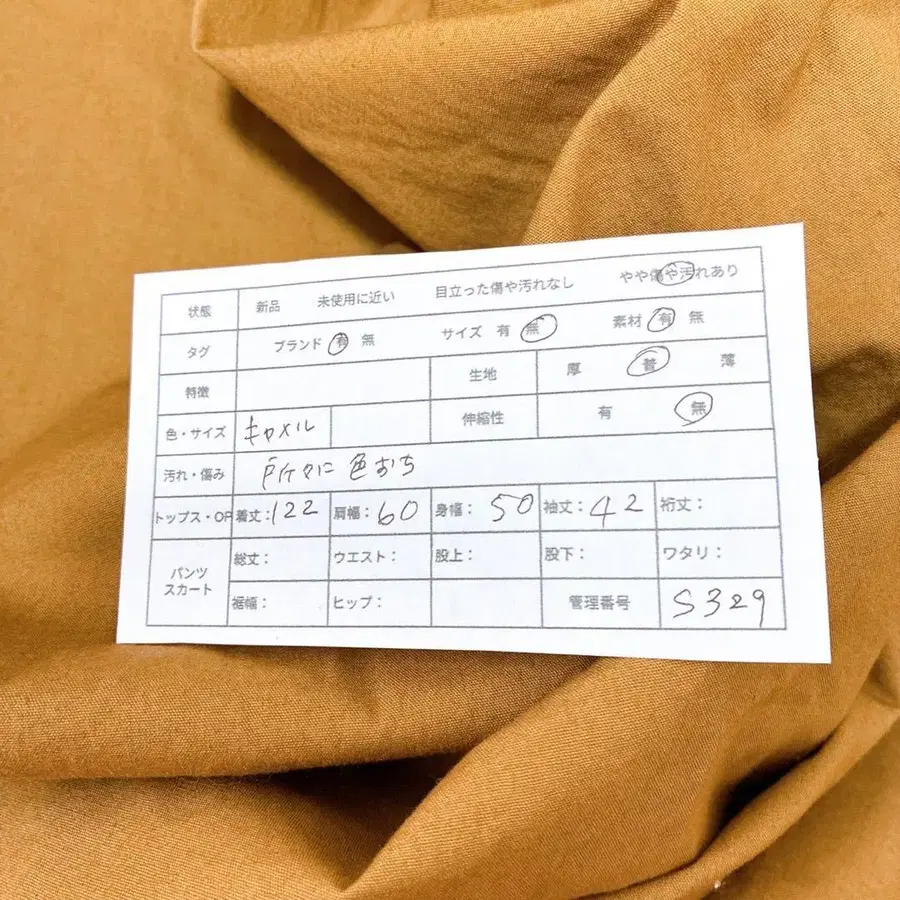 状態 新品 未使用に近い 目立った傷や汚れなし やや傷や汚れあり
タグ ブランド 有 無 サイズ 有 無 素材 有 無
特徴 生地 厚 普 薄
色・サイズ キャメル 伸縮性 有 無
汚れ・傷み 所々に色おち
トップス・OP 着丈:122 肩幅:60 身幅:50 袖丈:42 裄丈:
パンツ スカート 総丈: ウエスト: 股上: 股下: ワタリ:
裾幅: ヒップ: 管理番号 S329